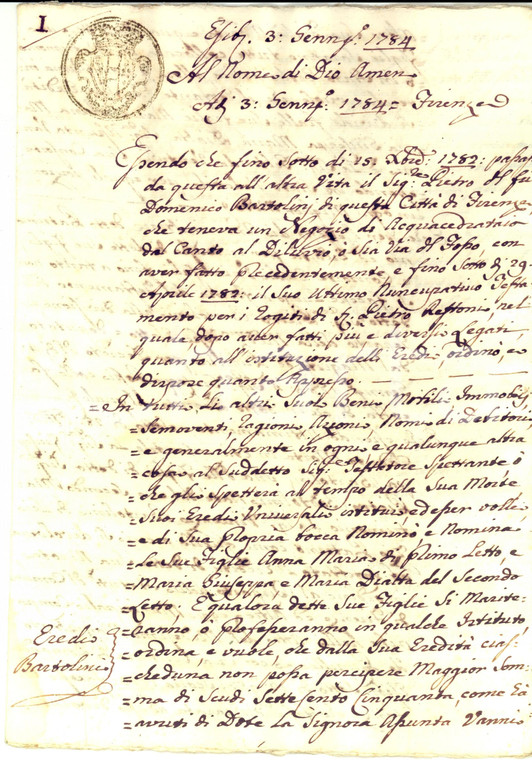 1
Esib. 3: Genn.º 1784
Al Nome di Dio Amen
Adj 3: Genn.º 1784 = Firenze
Essendo che fino sotto di 15. Xbre: 1782: passò
da questa all'altra Vita il Sig.re Pietro del fu
Domenico Bartolinj di questa Città di Firenze
che teneva un Negozio di Acquacedrataio
dal Canto al Diluvio, o sia Via del Fosso con
aver fatto precedentemente e fino sotto dì 29.
Aprile 1782: il suo Ultimo Nuncupativo Testa-
mento per i Rogiti di Pietro nel
quale dopo aver fatti più e diversi Legati,
quanto all'istituzione delli Eredi, ordinò, e
dispose quanto Appresso
= In tutti Li altri suoi Beni Mobili = Immobili
= Semoventi, Ragioni, Azioni, Nomi di Debitori
= e generalmente in ogni, e qualunque altra
= cosa al Suddetto Sig.re Testatore Spettante o
= che gli spetterà al tempo della Sua Morte
= Suoi Eredi Universali istituì, ed esser volle
= e di Sua propria bocca Nominò e Nomina
= Le Sue Figlie Anna Maria di primo Letto, e
= Maria Giuseppa, e Maria Diatta del Secondo
= Letto; E qualora dette Sue Figlie Si Marite-
= ranno, o Professeranno in qualche Istituto,
= ordina, e vuole, che dalla Sua Eredità cias-
= cheduna non possa percipere Maggior Som-
= ma di Scudi Settecento Cinquanta, come Ha
= avuti di Dote La Signora Assunta Vanni
Eredi
Bartolini